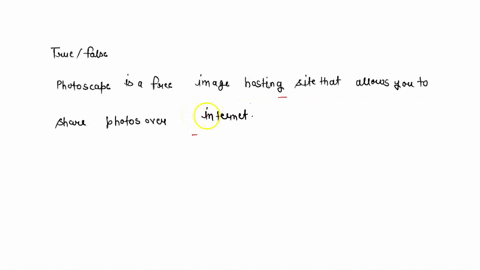 True/false
Photoscape is a free image hosting site that allows you to
share photos over internet.